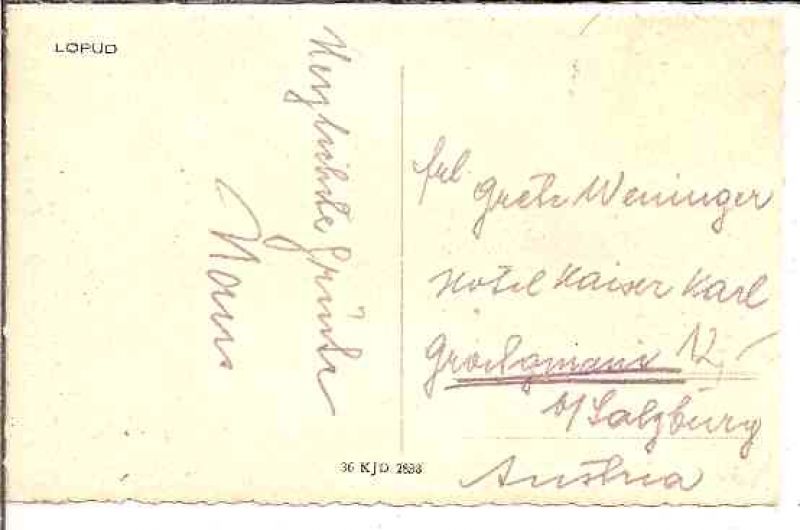 LOPUD
Herzlichste Grüße
Hans
Frl Grete Weninger
Hotel Kaiser Karl
12
b/Salzburg
Austria
36 KJD 2838